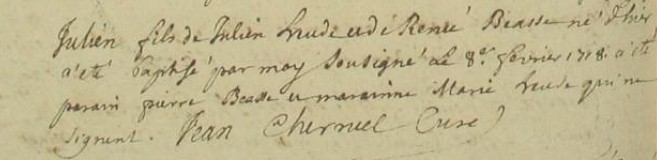 Julien fils de Julien hude et de Renee Beasse né d'hier
a été baptisé par moy Sousigné le 8e fevrier 1718. a été
parain pierre Beasse et maraine Marie hude qui ne
signent. Jean Chernuel Curé